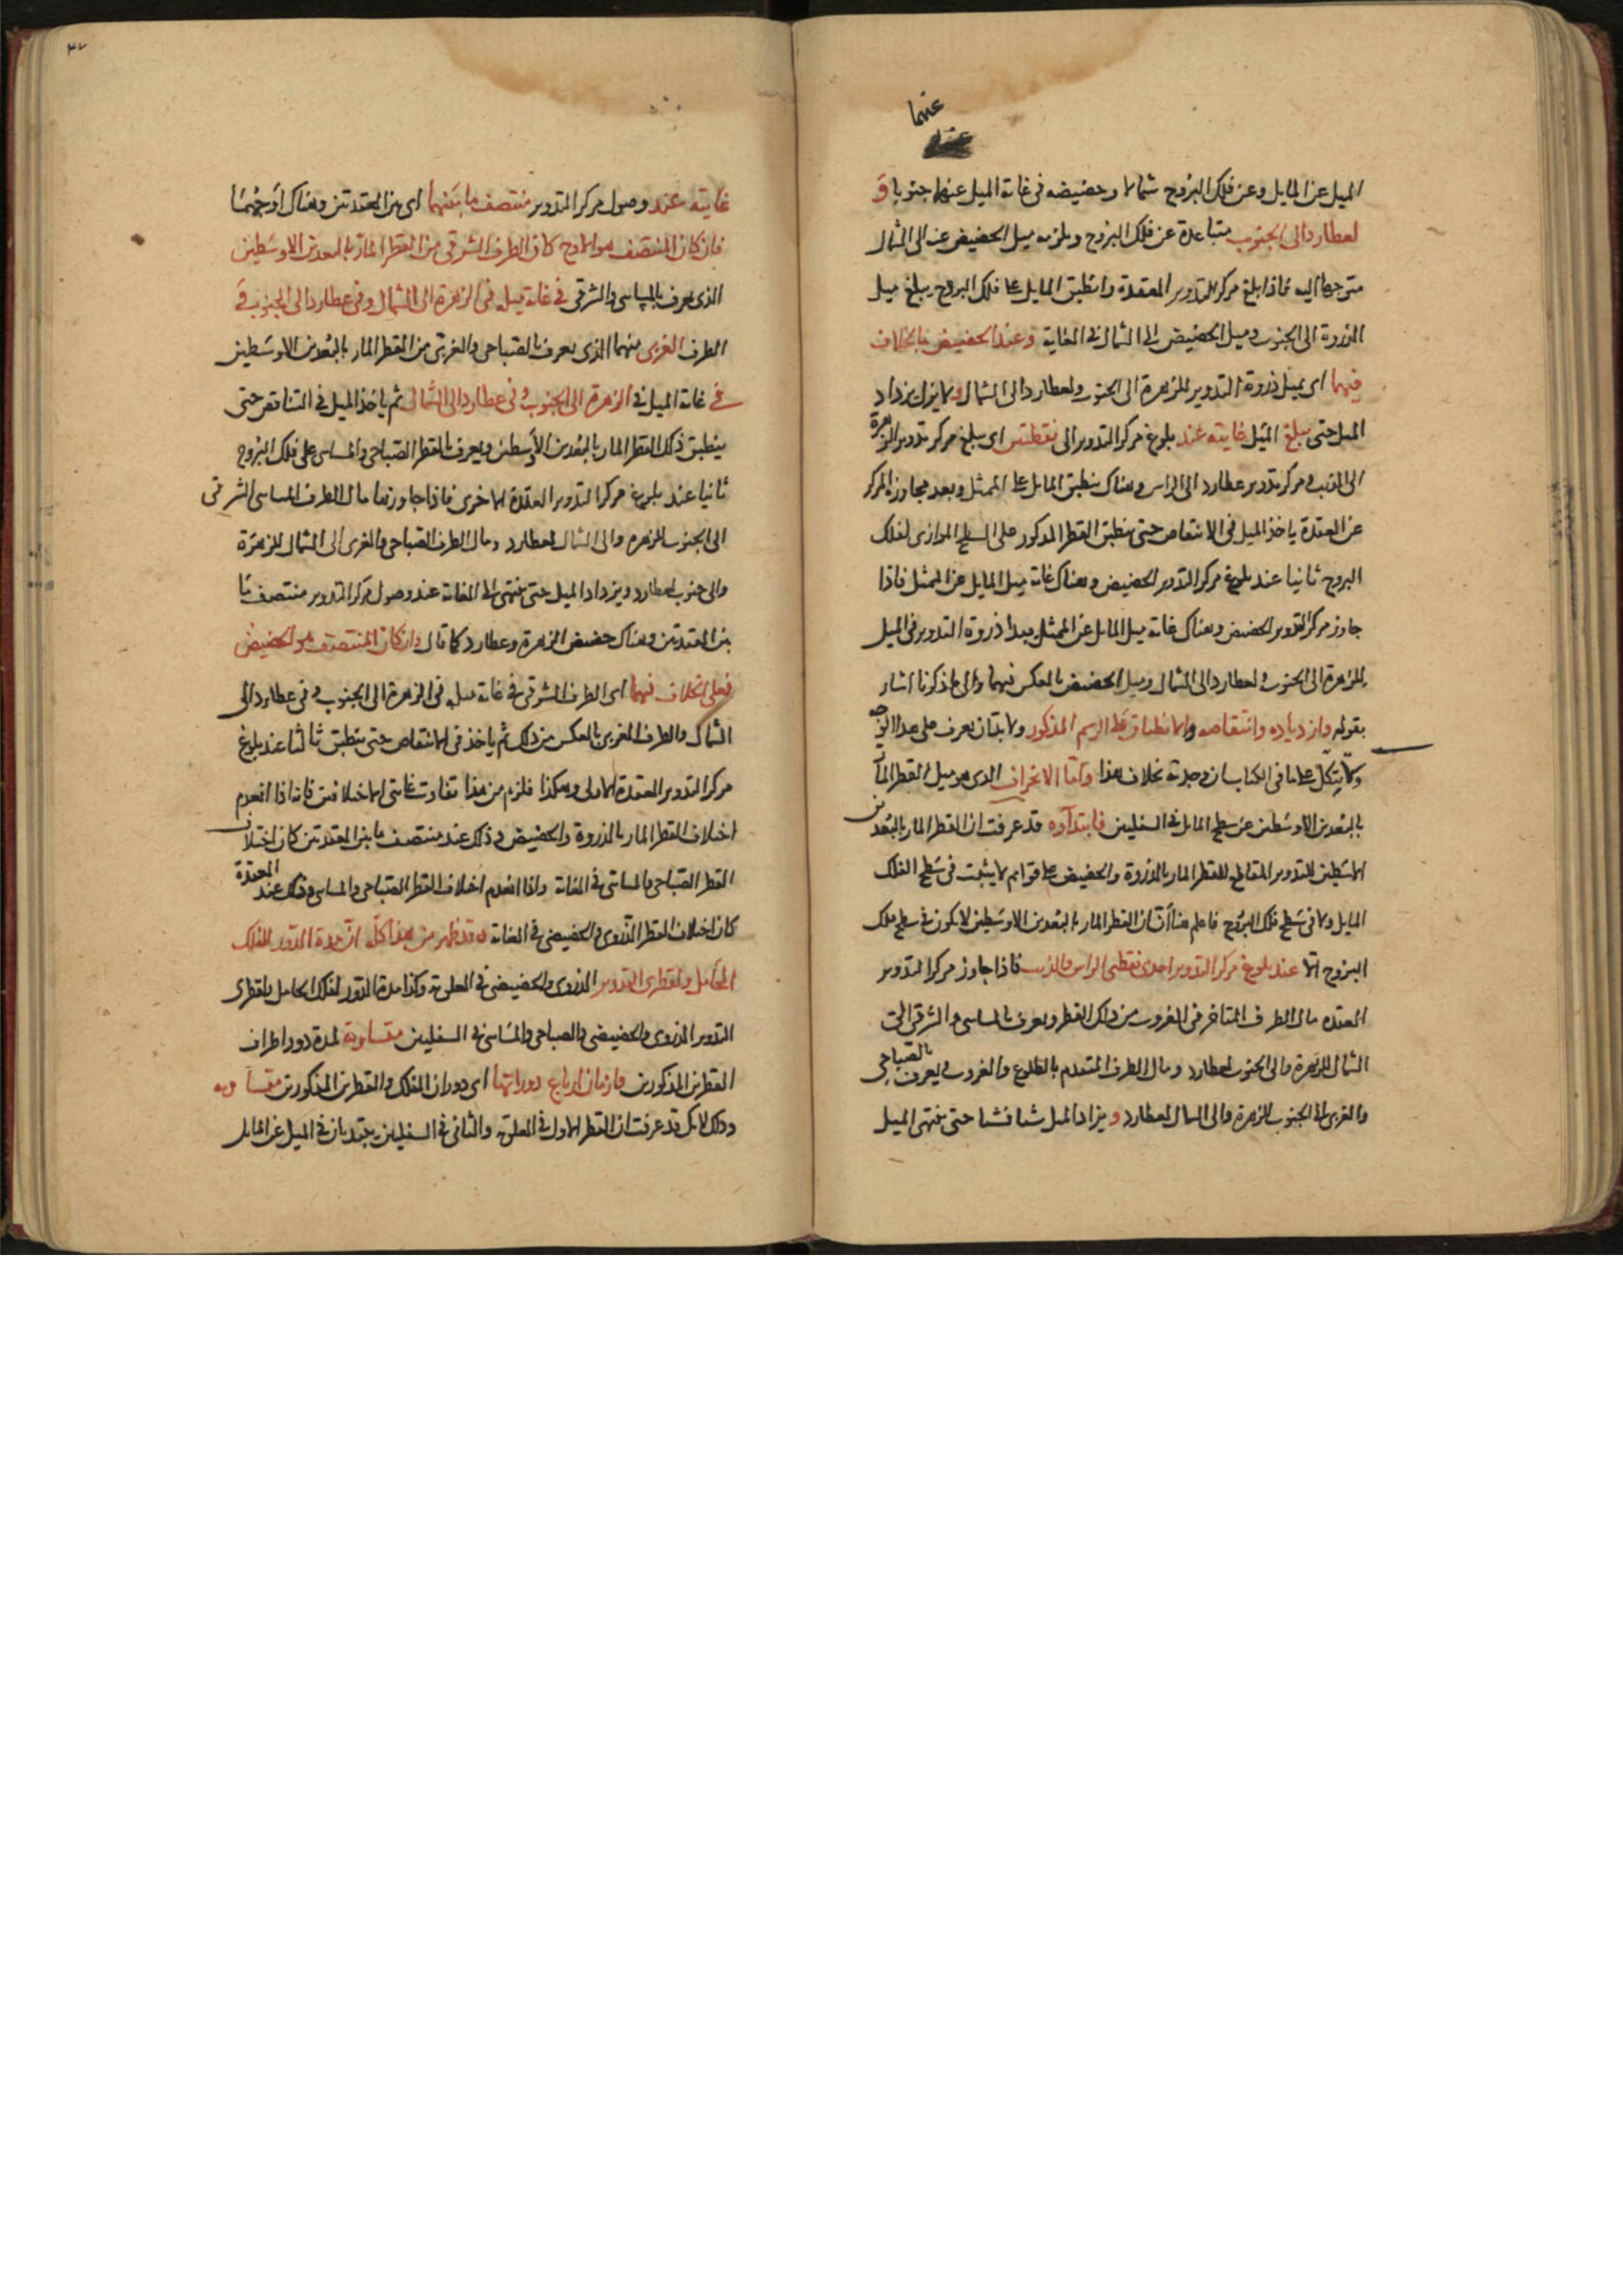 عنهما
الميل عن المايل وعن فلك البروج شمالا وحضيضه فى غاية الميل عنهما جنوبا و
لعطارد الى الجنوب متباعدة عن فلك البروج ويلزمه ميل الحضيض عنه الى الشمال
متوجها اليه فاذا بلغ مركز التدوير العقدة وانطبق المايل على فلك البروج يبلغ ميل
الذروة الى الجنوب وميل الحضيض الى الشمال فى الغاية وعند الحضيض بالخلاف
فيهما اى يميل ذروة التدوير للزهرة الى الجنوب ولعطارد الى الشمال ولا يزال يزداد
الميل حتى يبلغ الميل غايته عند بلوغ مركز التدوير الى نقطتين اى يبلغ مركز تدوير الزهرة
الى الذنب ومركز تدوير عطارد الى الراس وهناك ينطبق المايل على الممثل وبعد مجاوزة المركز
عن العقدة ياخذ الميل فى الانتقاص حتى ينطبق القطر المذكور على السطح الموازى لفلك
البروج ثانيا عند بلوغ مركز التدوير الحضيض وهناك غاية ميل المايل عن الممثل فاذا
جاوز مركز التدوير الحضيض وهناك غاية ميل المايل عن الممثل يبدا ذروة التدوير فى الميل
للزهرة الى الجنوب ولعطارد الى الشمال وميل الحضيض بالعكس فيهما والى ما ذكرنا اشار
بقوله وازدياده وانتقاصه والانطباق على الرسم المذكور ولا بد بان يعرف على هذا الوجه
ولا يتكل على ما فى الكتاب ان وجدته بخلاف هذا واما الانحراف الذى هو ميل القطر المار
بالبعدين الاوسطين عن سطح المايل فى السفليين فابتداوه قد عرفت ان القطر المار بالبعدين
الاوسطين للتدوير المقاطع للقطر المار بالذروة والحضيض على قوايم لا يثبت فى سطح الفلك
المايل ولا فى سطح فلك البروج فاعلم هنا ان القطر المار بالبعدين الاوسطين لا يكون فى سطح فلك
البروج الا عند بلوغ مركز التدوير احدى نقطتى الراس والذنب فاذا جاوز مركز التدوير
العقدة مال الطرف المتاخر فى الغروب من ذلك القطر ويعرف بالمسايى والشرقى الى
الشمال للزهرة والى الجنوب لعطارد ومال الطرف المتقدم بالطلوع والغروب ويعرف بالصباحى
والغربى الى الجنوب للزهرة والى الشمال لعطارد ويزاد الميل شيا فشيا حتى ينتهى الميل
٣٧
غايته عند وصول مركز التدوير منتصف ما بينهما اى بين العقدتين وهناك اوجهما
فان كان المنتصف هو الاوج كان الطرف الشرقى من القطر المار بالبعدين الاوسطين
الذى يعرف بالمسايى والشرقى فى غاية ميله فى الزهرة الى الشمال وفى عطارد الى الجنوب و
الطرف الغربى منهما الذى يعرف بالصباحى والغربى من القطر المار بالبعدين الاوسطين
فى غاية الميل فى الزهرة الى الجنوب وفى عطارد الى الشمال ثم ياخذ الميل فى التناقص حتى
ينطبق ذلك القطر المار بالبعدين الاوسطين ويعرف بالقطر الصباحى والمسايى على فلك البروج
ثانيا عند بلوغ مركز التدوير العقدة الاخرى فاذا جاوزها مال الطرف المسايى الشرقى
الى الجنوب للزهرة والى الشمال لعطارد ومال الطرف الصباحى والغربى الى الشمال للزهرة
والى جنوب لعطارد ويزداد الميل حتى ينتهى الى الغاية عند وصول مركز التدوير منتصف ما
بين العقدتين وهناك حضيض الزهرة وعطارد كما قال وان كان المنتصف هو الحضيض
فعلى الخلاف فيهما اى الطرف الشرقى فى غاية ميله فى الزهرة الى الجنوب وفى عطارد الى
الشمال والطرف الغربى بالعكس من ذلك ثم ياخذ فى الانتقاص حتى ينطبق ثالثا عند بلوغ
مركز التدوير العقدة الاولى وهكذا فلزم من هذا تفاوت غايتى الاختلافين فانه اذا انعدم
اختلاف القطر المار بالذروة والحضيض وذلك عند منتصف ما بين العقدتين كان اختلاف
القطر الصباحى والمسايى فى الغاية واذا انعدم اختلاف القطر الصباحى والمسايى وذلك عند العقدة
كان اختلاف القطر الذروى والحضيضى فى الغاية وقد ظهر من هذا كله ان مدة الدور للفلك
الحامل ولقطرى التدوير الذروى والحضيضى فى العلوية وكذا مدة الدور لفلك الحامل ولقطرى
التدوير الذروى والحضيضى والصباحى والمسايى فى السفليين متساوية لمدة دور اطراف
القطرين المذكورين وازمان ارباع دوراتها اى دوران الفلك والقطرين المذكورين متساوية
وذلك لانك قد عرفت ان القطر الاول فى العلوية والثانى فى السفليين يبتديان فى الميل عن المايل